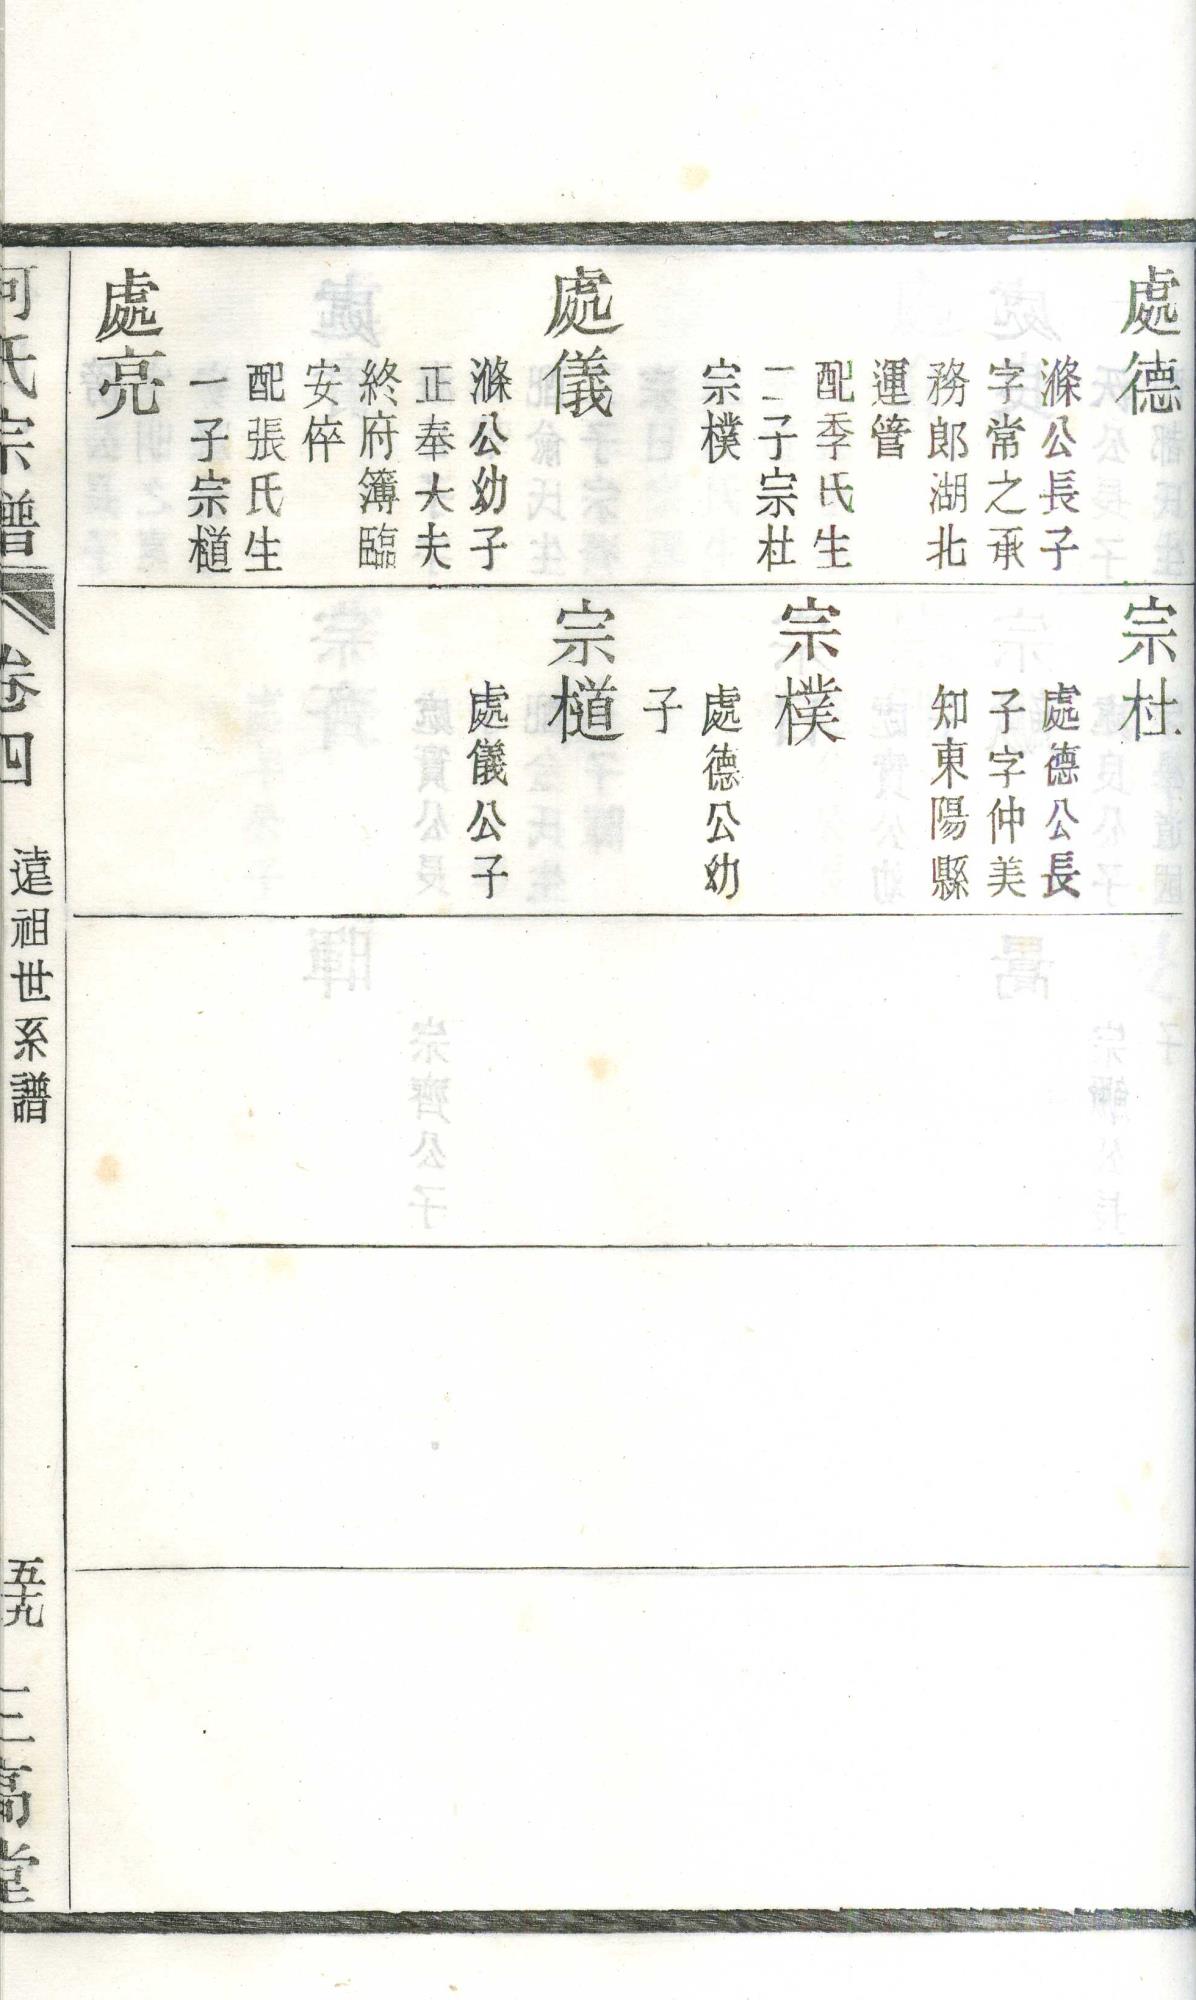 處德
滌公長子
字常之承
務郎湖北
運管
配季氏生
二子宗杜
宗樸
處儀
滌公幼子
正奉大夫
終府簿臨
安倅
配張氏生
一子宗檤
處亮
宗杜
處德公長
子字仲美
知東陽縣
宗樸
處德公幼
子
宗檤
處儀公子
何氏宗譜
卷四
遠祖世系譜
五十九
三高堂